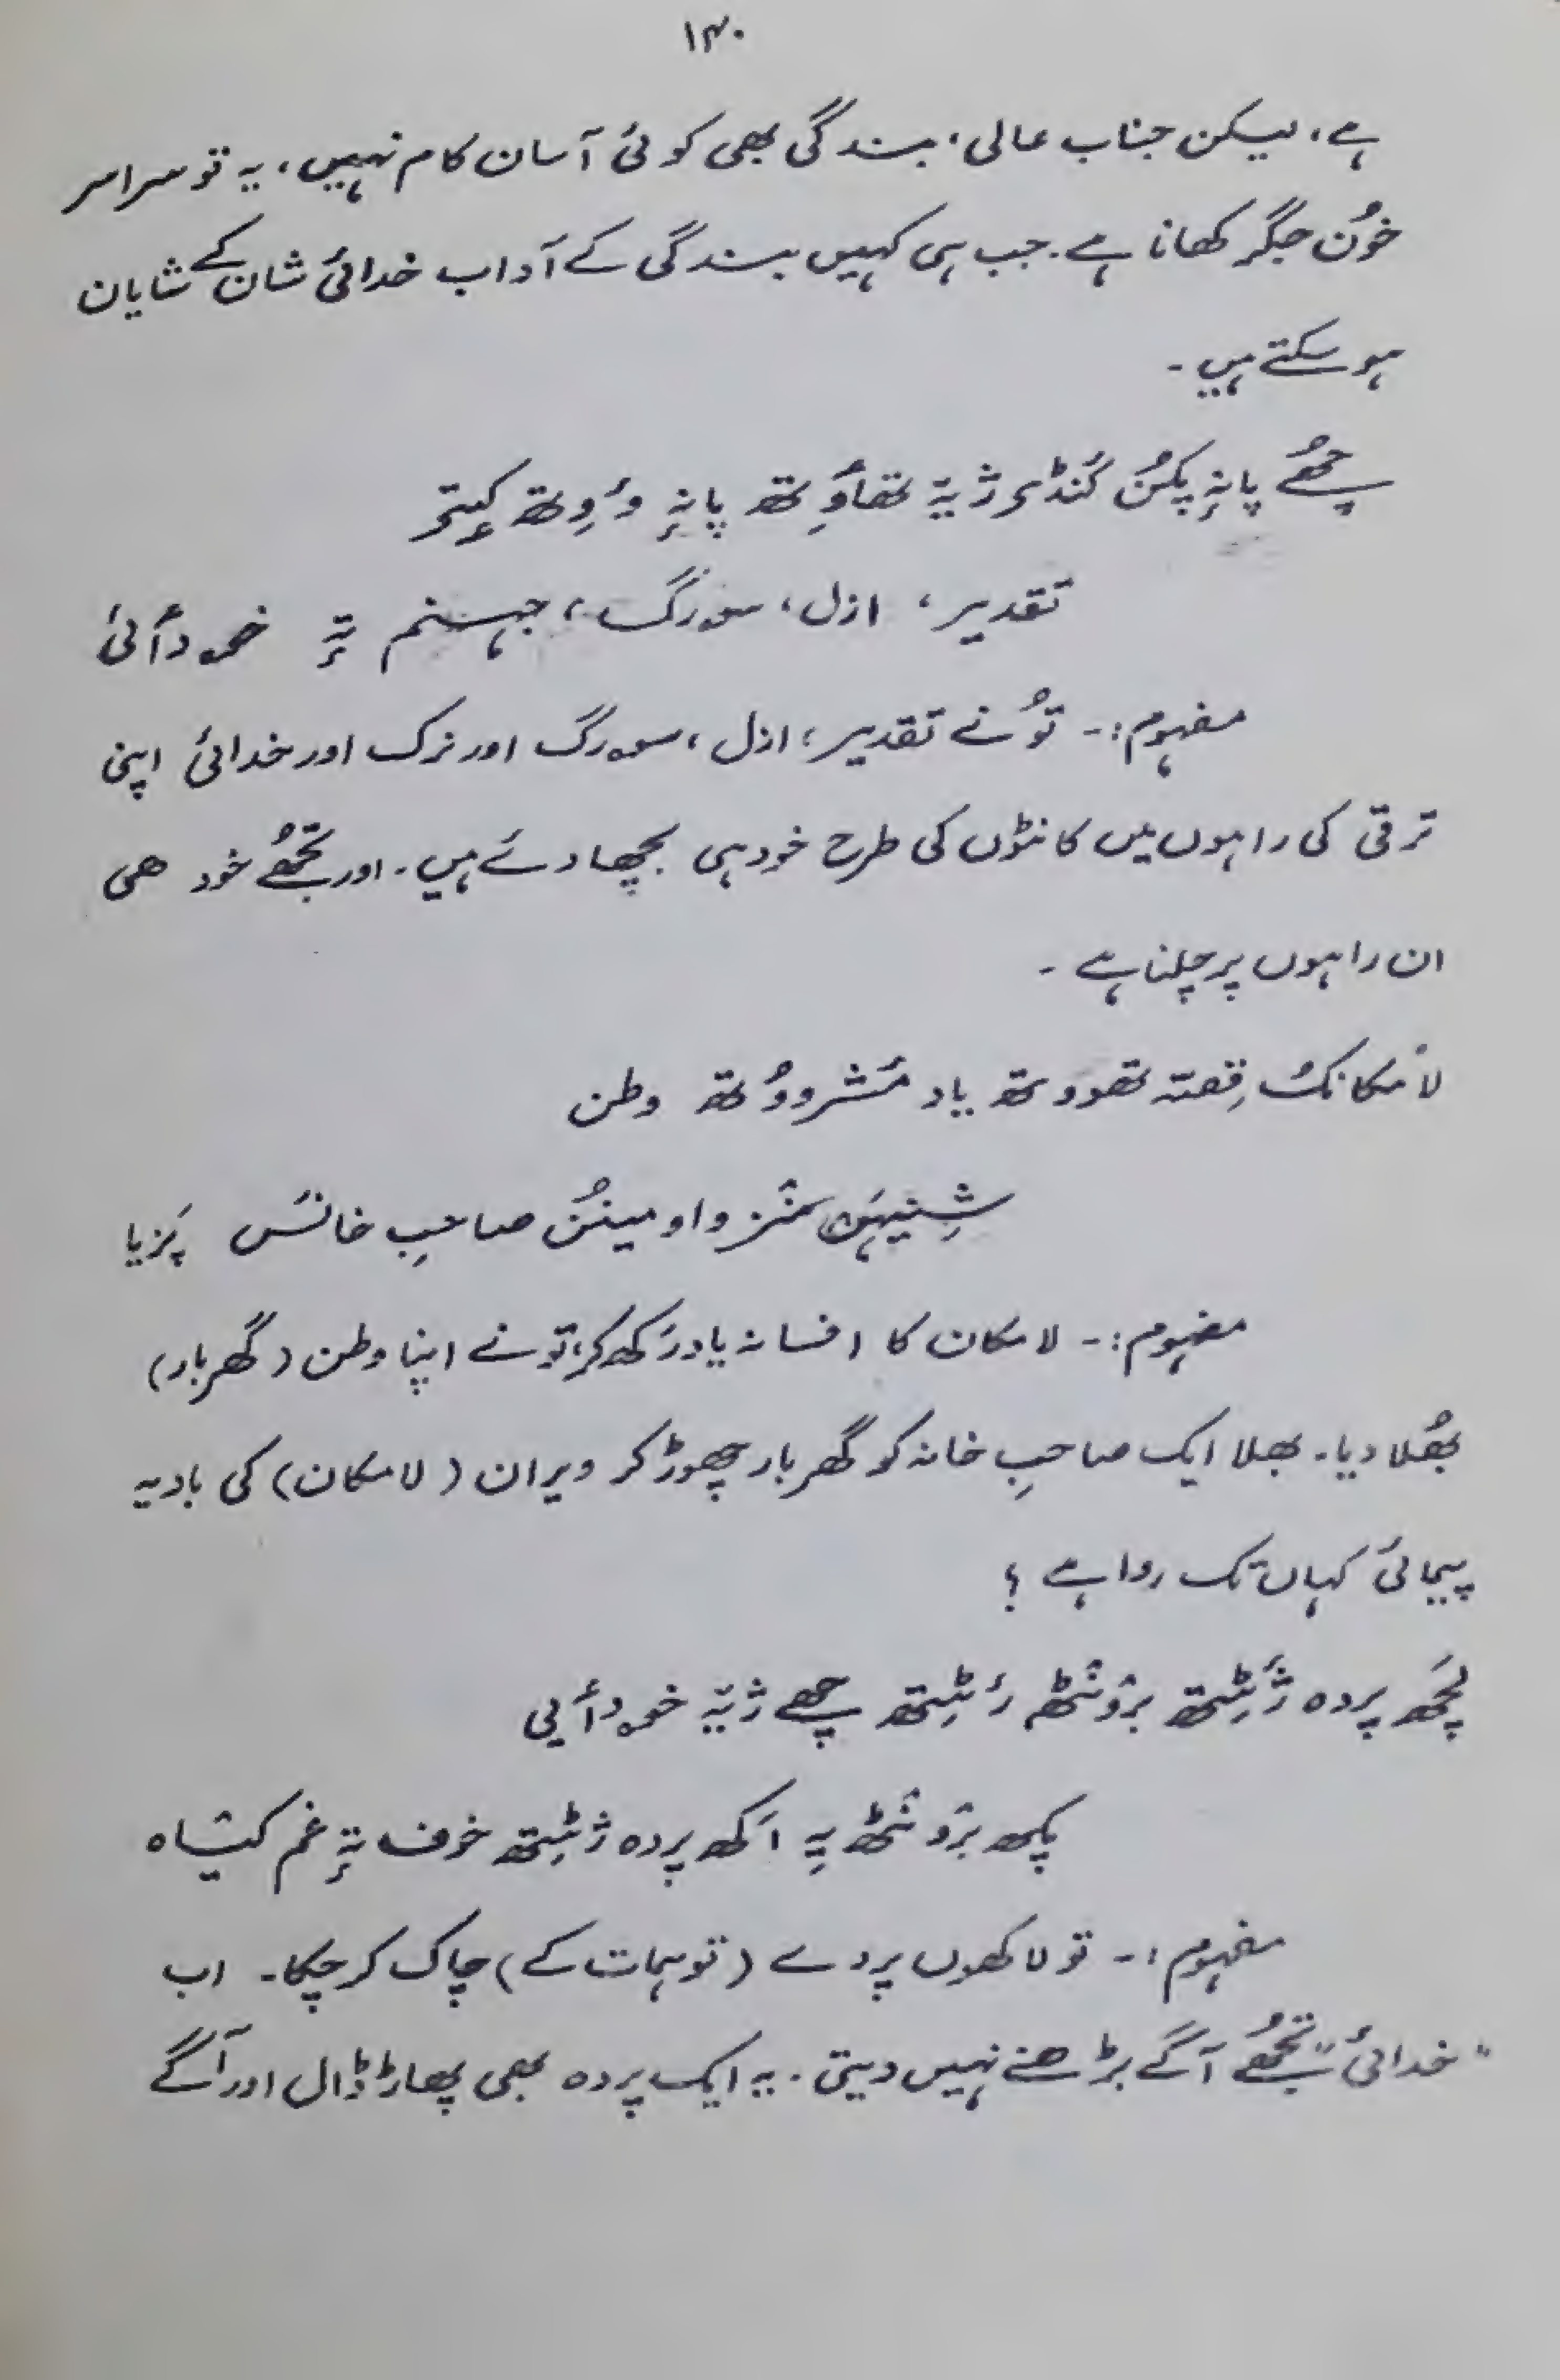 ۱۴۰
ہے، لیکن جناب عالی، بندگی بھی کوئی آسان کام نہیں، یہ تو سراسر
خوُن جگر کھانا ہے۔ جب ہی کہیں بندگی کے آداب خدائی شان کے شایان
ہو سکتے ہیں۔
چھُے پانہٕ پکُن کنڈۍ ژےٚ تھأوِتھ پانہٕ وَوِتھ کیتۍ
تقدیر، ازل، سۄرگ، جہنم تہٕ خۄدأئی
مفہوم:۔ توُ نے تقدیر، ازل، سۄرگ اور نرک اور خدائی اپنی
ترقی کی راہوں میں کانٹوں کی طرح خود ہی بچھا دئے ہیں۔ اور تجھُے خود ھی
ان راہوں پر چلنا ہے۔
لامکانُک قِصّہ تھوو تھ یاد مٔشروُوتھ وطن
منٛز واو مینُن صاحبِ خانَس پَزیا
مفہوم:۔ لامکان کا افسانہ یاد رَکھ کر، تو نے اپنا وطن (گھر بار)
بھُلا دیا۔ بھلا ایک صاحبِ خانہ کو گھر بار چھوڑ کر ویران (لامکان) کی بادیہ
پیمائی کہاں تک روا ہے ؟
لچَھ پردہ ژَٹِتھ برٛونٛٹھ رَٹِتھ چھے ژےٚ خۄدأیی
پکھ برٛونٛٹھ یہِ اَکھ پردہ ژٹِتھ خوف تہٕ غم کیٛاہ
مفہوم:۔ تو لاکھوں پردے (توہمات کے) چاک کر چکا۔ اب
"خدائی" تجھُے آگے بڑھنے نہیں دیتی۔ یہ ایک پردہ بھی پھاڑ ڈال اور آگے